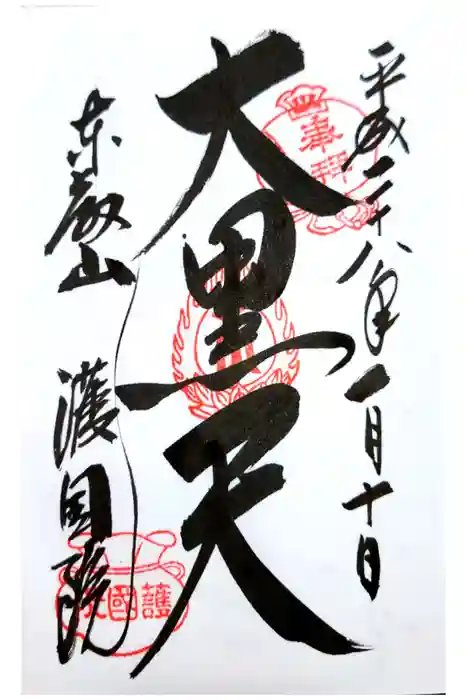 平成二十八年一月十日
奉拝
大黒天
東叡山 護国院
護國院